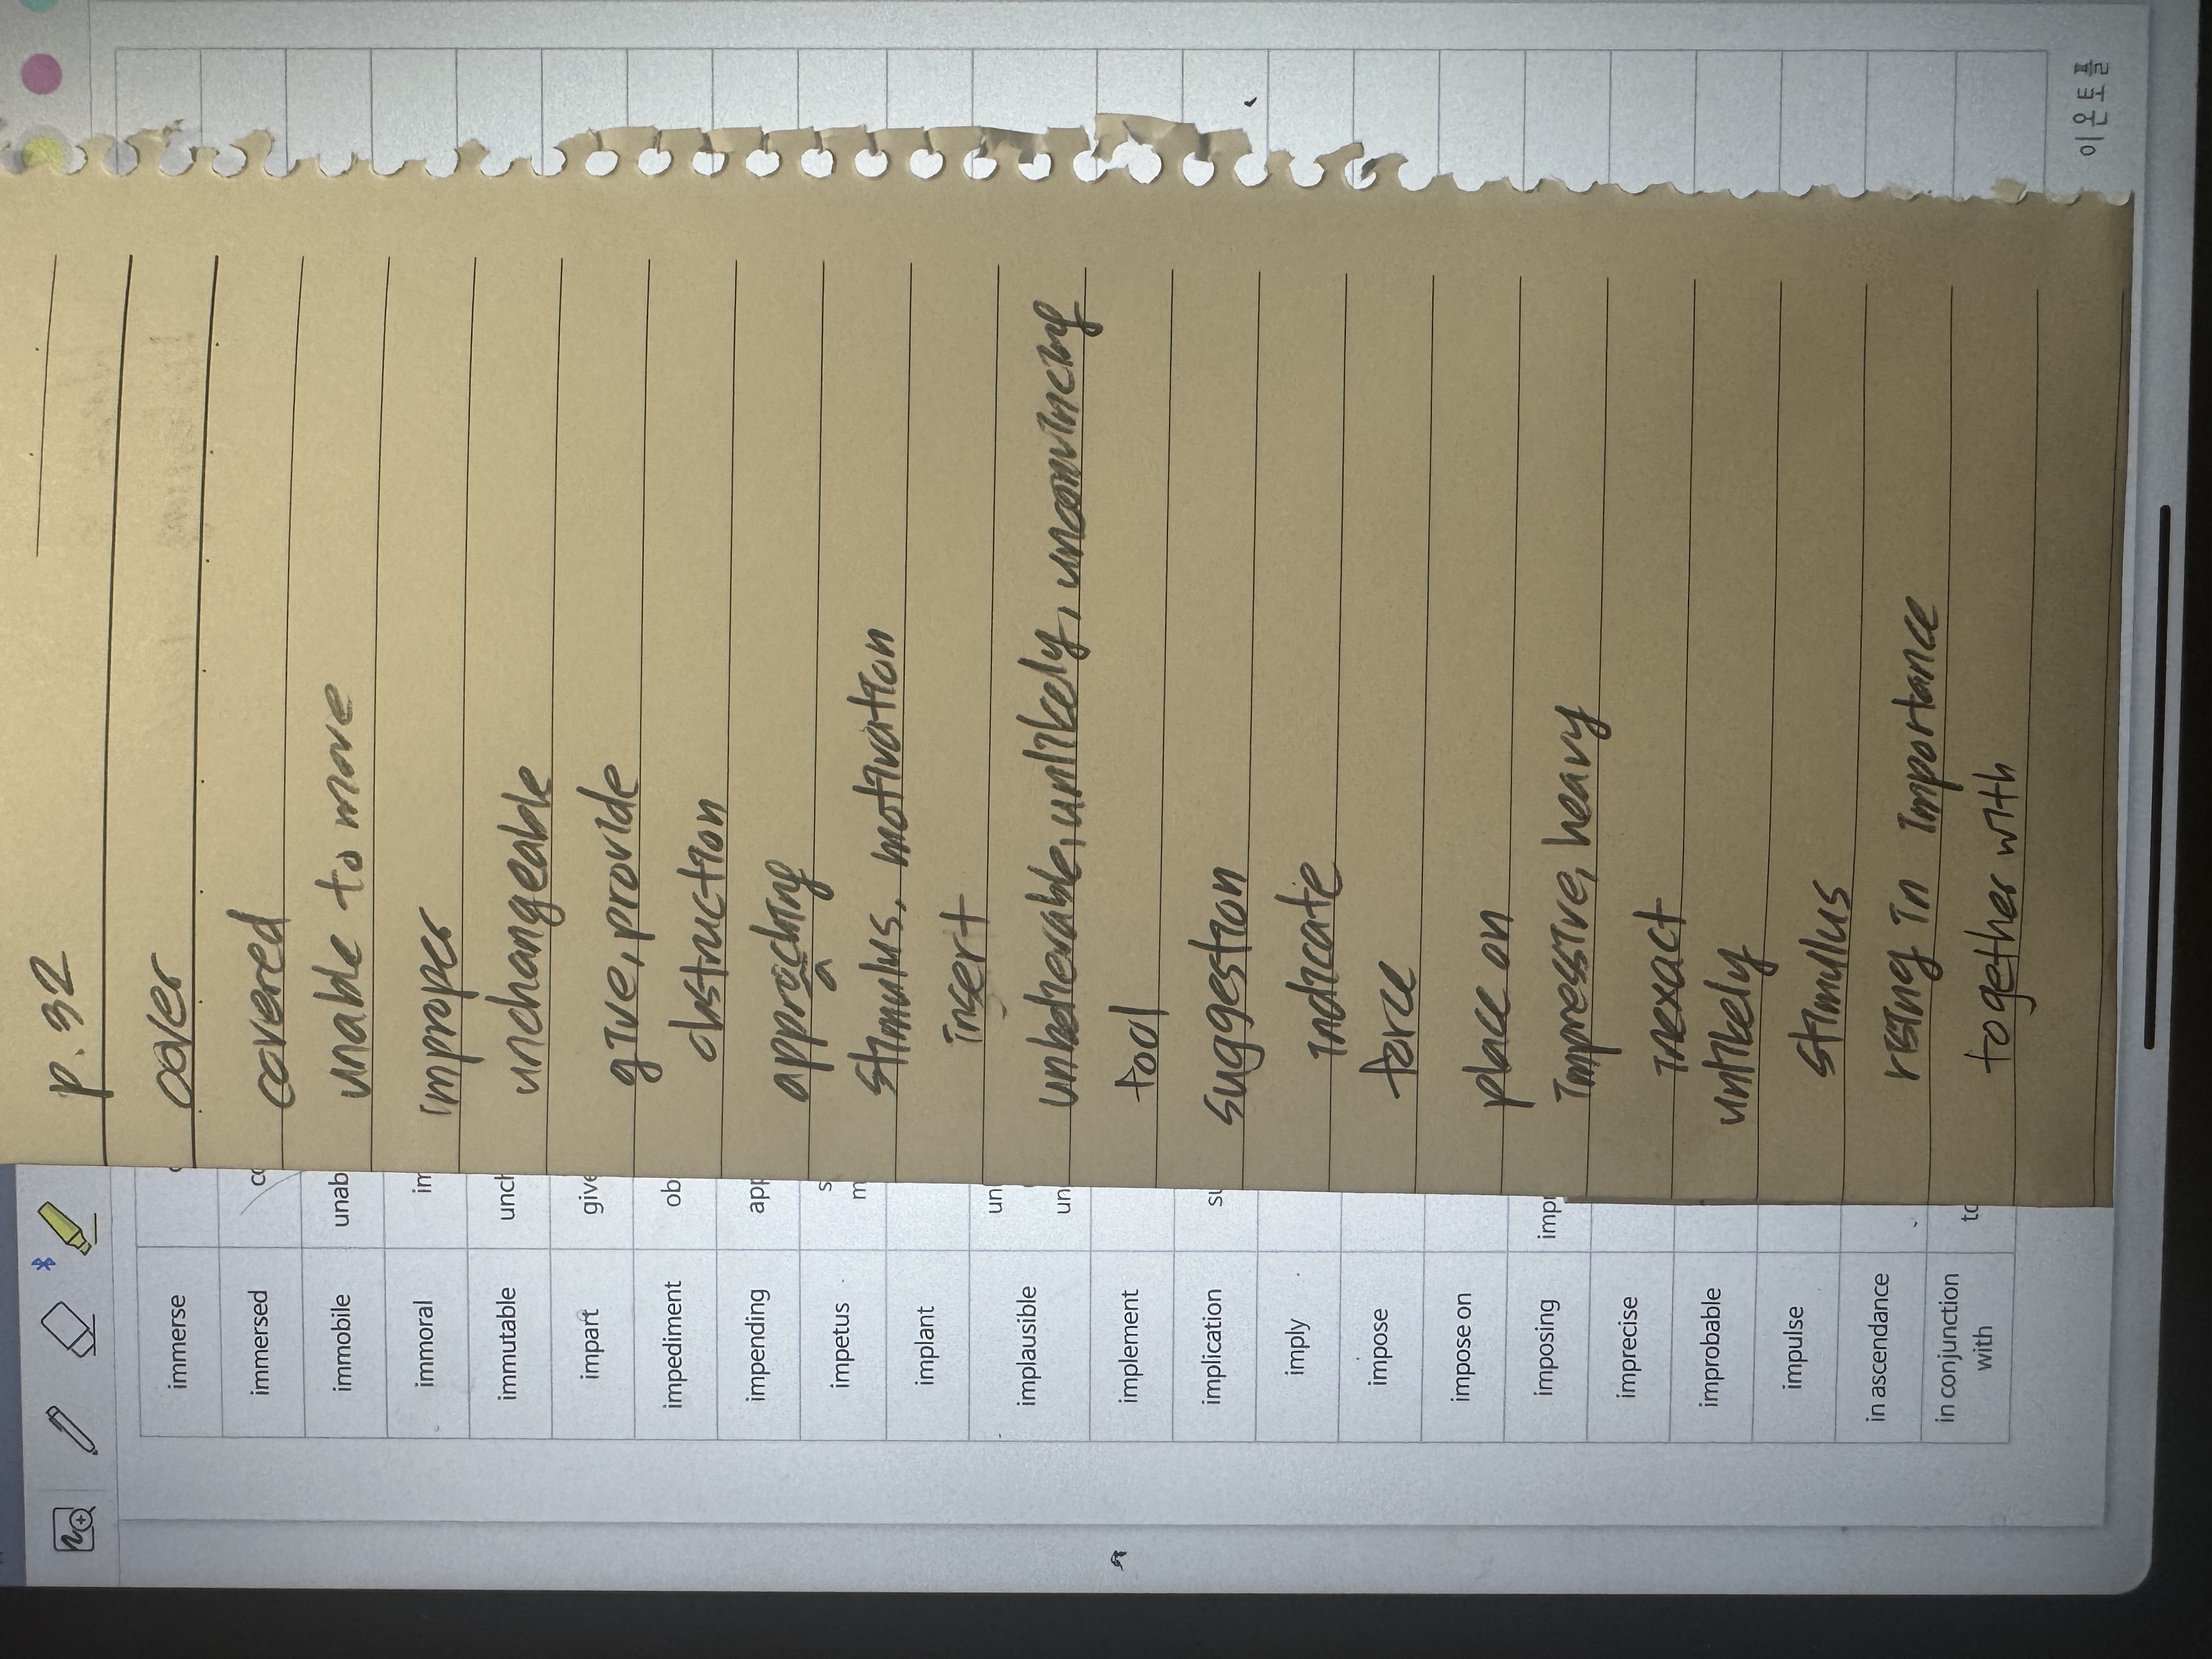 p. 32
immerse cover
immersed co covered
immobile unab unable to move
immoral im improper
immutable unch unchangeable
impart give give, provide
impediment ob obstruction
impending app approching a
impetus s m stimulus, motivation
implant insert
implausible un un unbelievable, unlikely, unconvincing
implement tool
implication su suggestion
imply indicate
impose force
impose on place on
imposing imp impressive, heavy
imprecise inexact
improbable unlikely
impulse stimulus
in ascendance rising in importance
in conjunction with to together with
이은토플